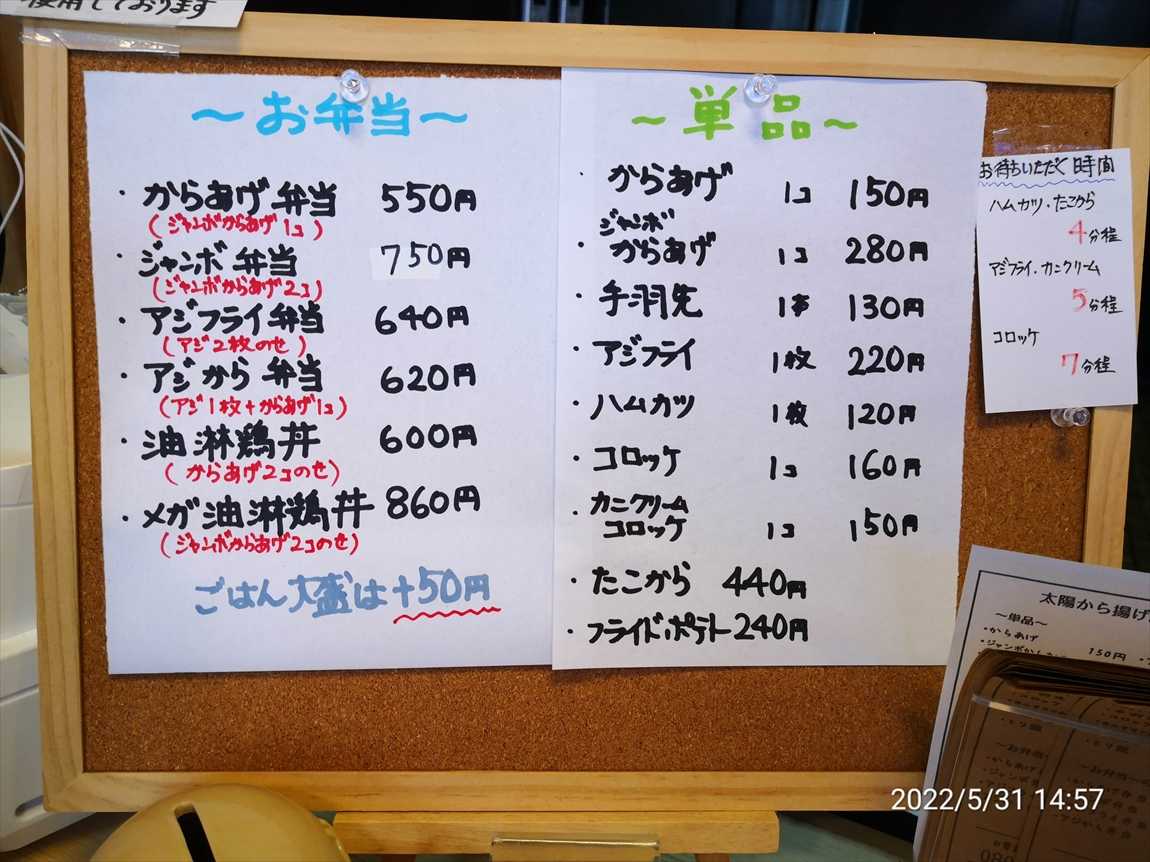 使用しております
～お弁当～
・からあげ弁当 550円
(ジャンボからあげ1コ)
・ジャンボ弁当 750円
(ジャンボからあげ2コ)
・アジフライ弁当 640円
(アジ2枚のせ)
・アジから弁当 620円
(アジ1枚+からあげ1コ)
・油淋鶏丼 600円
(からあげ2コのせ)
・メガ油淋鶏丼 860円
(ジャンボからあげ2コのせ)
ごはん大盛は+50円
～単品～
・からあげ 1コ 150円
ジャンボ
・からあげ 1コ 280円
・手羽先 1本 130円
・アジフライ 1枚 220円
・ハムカツ 1枚 120円
・コロッケ 1コ 160円
・カニクリーム
コロッケ 1コ 150円
・たこから 440円
・フライドポテト 240円
お待ちいただく時間
ハムカツ・たこから
4分程
アジフライ・カニクリーム
5分程
コロッケ
7分程
太陽から揚げ
～単品～
・からあげ
150円
～お弁当
～お弁当
2022/5/31 14:57